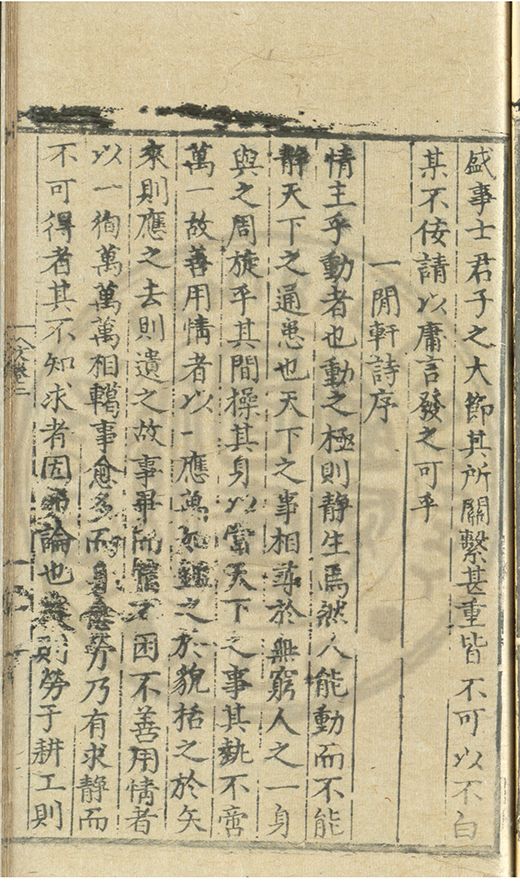 盛事士君子之大節其所關繫甚重皆不可以不白
某不佞請以庸言發之可乎
一閒軒詩序
情主乎動者也動之極則静生焉然人能動而不能
静天下之通患也天下之事相尋於無窮人之一身
與之周旋乎其間操其身以當天下之事其埶不啻
萬一故善用情者以一應萬如鑑之於貌括之於矢
來則應之去則遺之故事畢而情不困不善用情者
以一徇萬萬萬相轕事愈多而身愈勞乃有求静而
不可得者其不知求者因弗論也則勞于耕工則